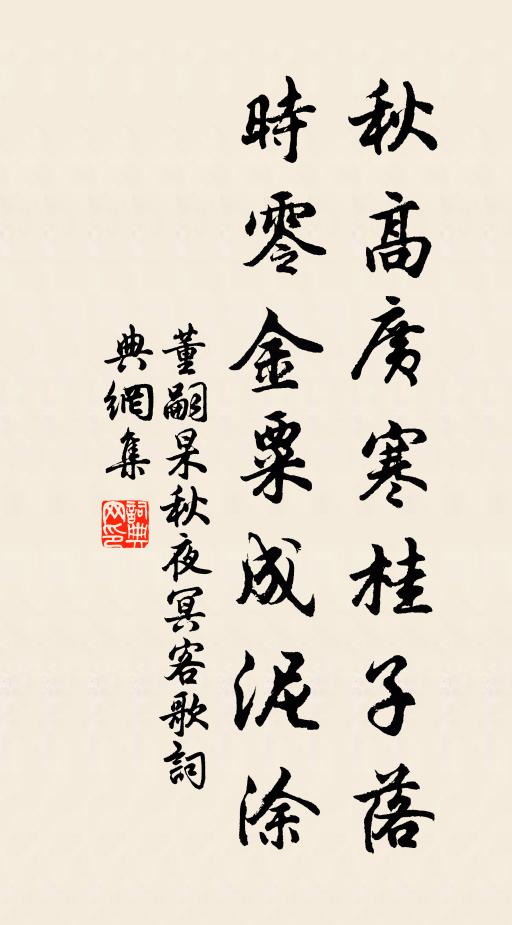 秋高廣寒桂子落
時零金粟成泥涂
董嗣杲秋夜冥客歌詞
典網集
詞典
网印